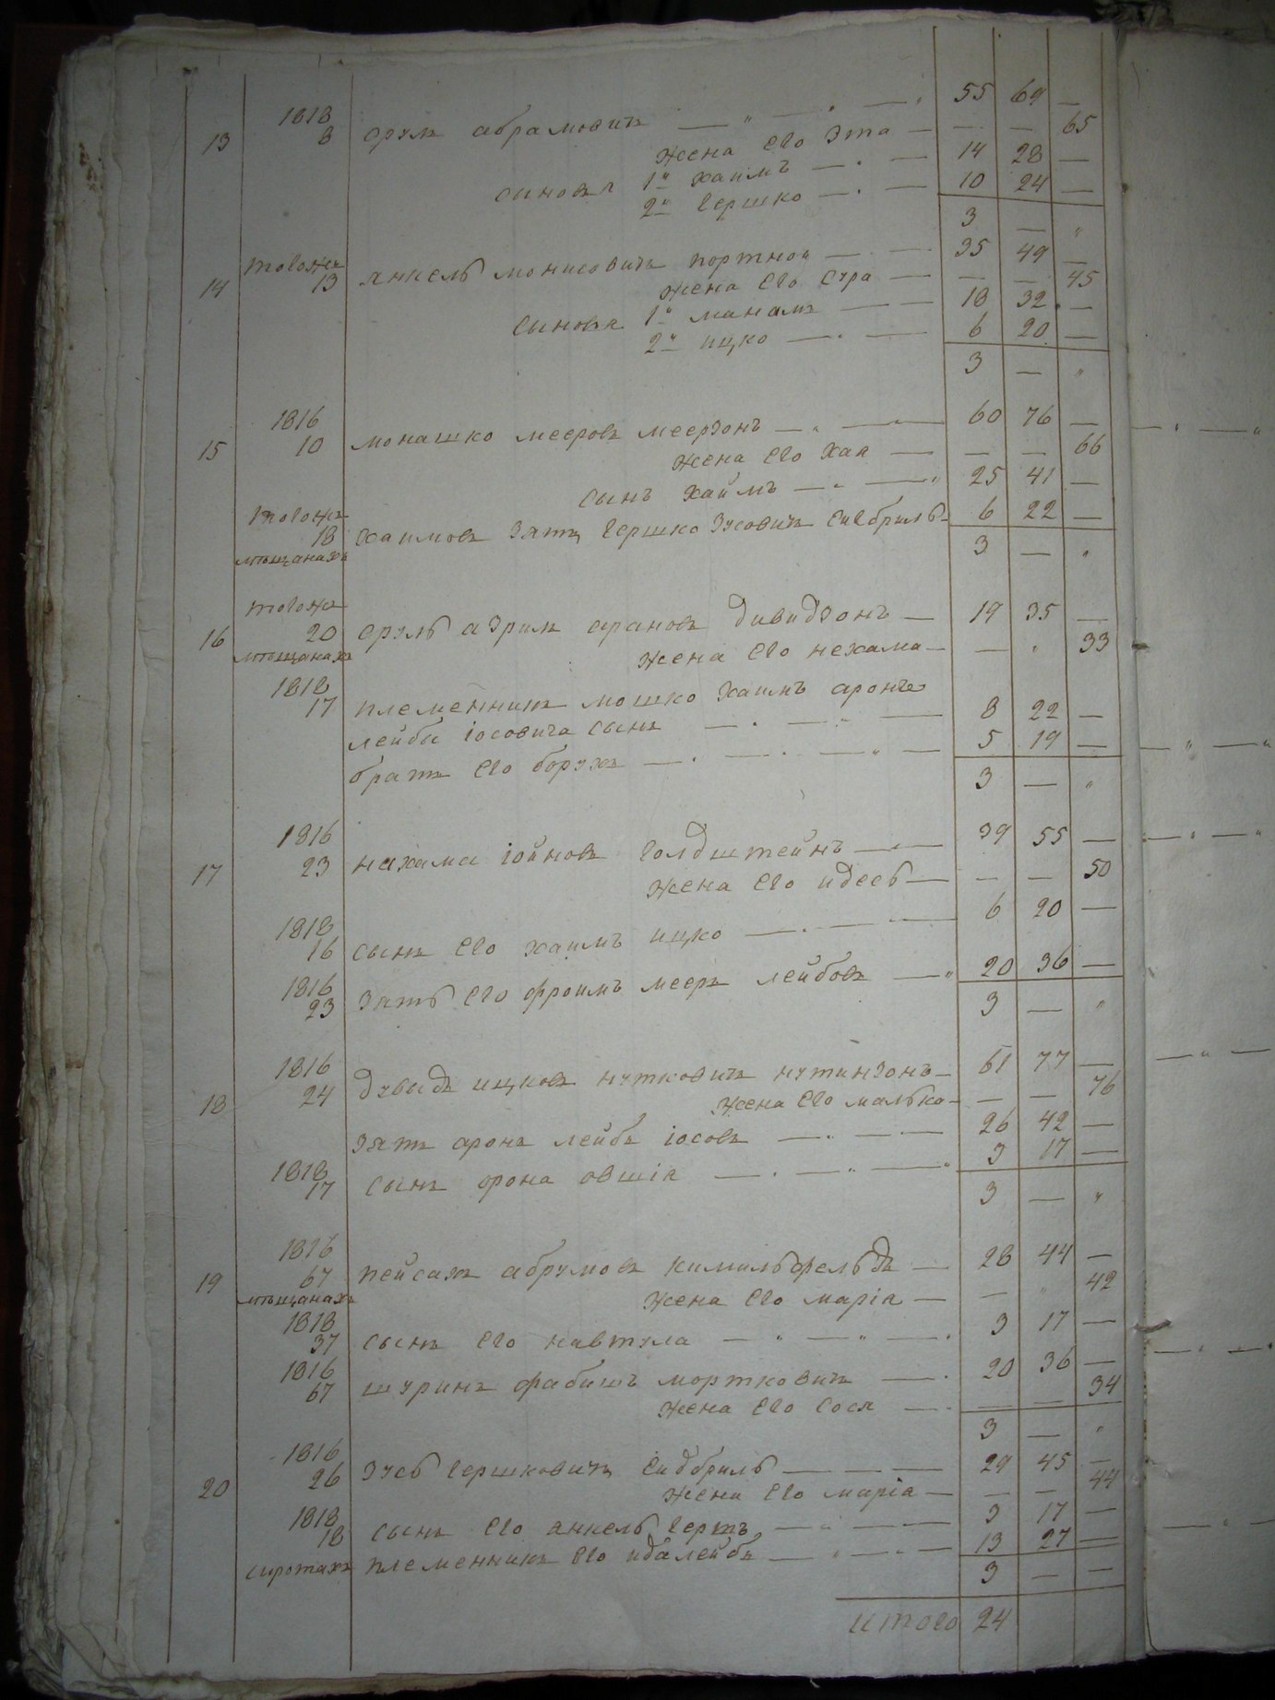 55 69 —
1818
13 8 Сруль абрамовичъ — " — . — .
жена его Эта — — — 65
сыновья 1й хаимъ — . — 14 28 —
2й Гершко — . — 10 24 —
3 — "
тогожъ
14 13 Янкель мопсовичъ портной — . — 35 49 —
жена его Сура — — — 45
Сыновья 1й — — 18 32 —
2й ицко — . — 6 20 —
3 — "
1816
15 10 монашко мееровъ меерзонъ — . — 60 76 —
жена его Хая — — — 66
сынъ хаймъ — . — 25 41 —
тогожъ
18 хаимовъ зять Гершко Зусовичъ 6 22 —
мѣщанахъ
3 — "
тогожъ
16 20 Сруль азриль ароновъ Давидзонъ — 19 35 —
мѣщанахъ
жена его нехама — — " 33
1818
17 племенникъ мошко хаимъ аронъ
лейбы іосовича сынъ — . — . — 8 22 —
братъ его борухъ — . — . — " — 5 19 —
3 — "
1816
17 23 нахама іойновъ Голдштейнъ — — 39 55 —
жена его идесь — — — 50
1818
16 сынъ его хаимъ ицко — . — — 6 20 —
1816
23 Зять его фроимъ мееръ лейбовъ — " 20 36 —
3 — "
1816
18 24 Давыдъ ицковъ нутковичъ нутинзонъ — 61 77 —
жена его малька — — — 76
Зять аронъ лейба іосовъ — . — — 26 42 —
1818
17 сынъ арона овшія — . — " — " 3 17 —
3 — "
1816
19 67 пейсахъ абрумовъ кимильфельдъ — 28 44 —
мѣщанахъ
жена его марія — — . 42
1818
37 сынъ его навтула — " — " — . 3 17 —
1816
67 шуринъ фабишъ мортковичъ — . 20 36 —
жена его Сося — . — — 34
3 — "
1816
20 26 Зусь Гершковичъ — — — 29 45 —
жена его марія — — — 44
1818
18 сынъ его янкель Герцъ — " — — 3 17 —
сиротахъ племенникъ его — " — . — 13 27 —
3 — —
Итого 24